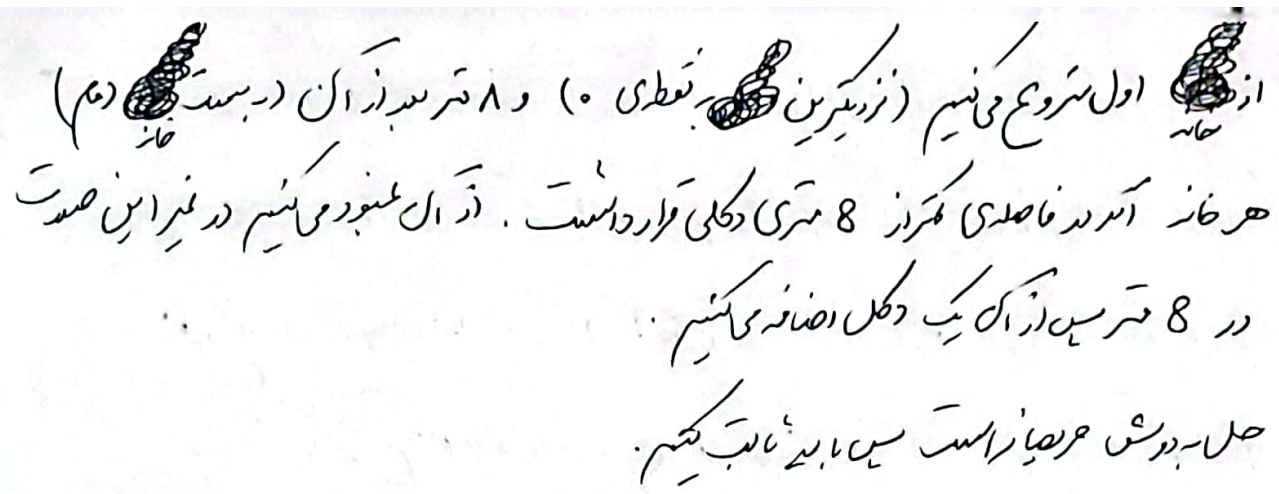 از خانه اول شروع می‌کنیم (نزدیکترین به نقطه‌ی ۰) و ۸ متر بعد از آن (به سمت خانه دوم)
هر خانه اگر در فاصله‌ی کمتر از 8 متری دکلی قرار داشت . از آن عبور می‌کنیم در غیر این صورت
در 8 متر پس از آن یک دکل اضافه می‌کنیم .
حل به روش حریصانه است پس باید ثابت کنیم .